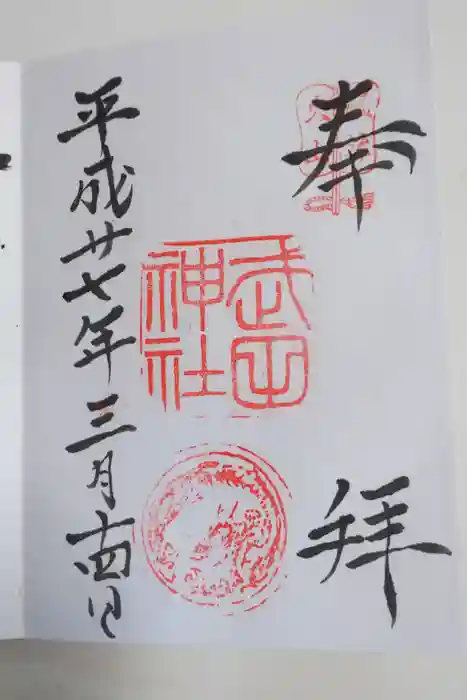 奉拝
武田神社
平成廿七年三月十四日